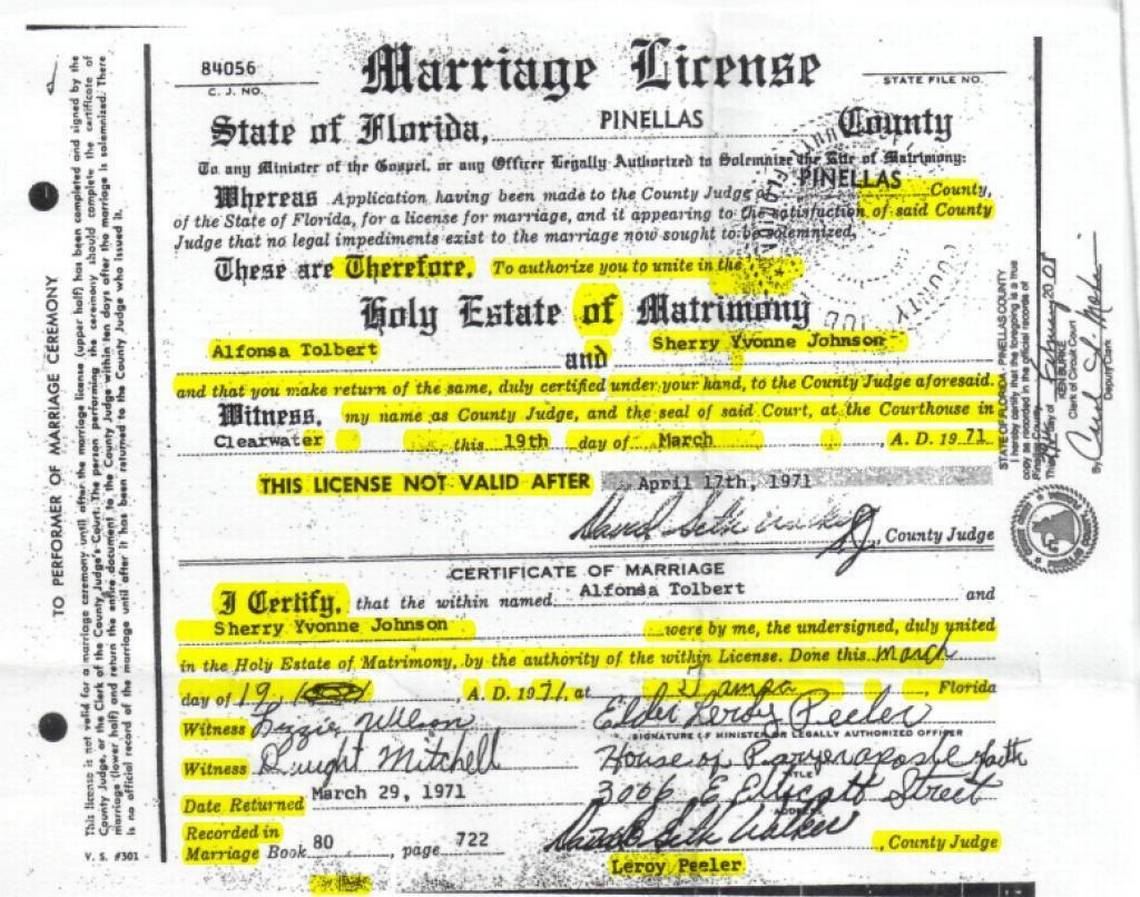 84056
C. J. NO.
Marriage License
STATE FILE NO.
State of Florida, PINELLAS County
To any Minister of the Gospel, or any Officer Legally Authorized to Solemnize the Rite of Matrimony:
PINELLAS
Whereas Application having been made to the County Judge of County,
of the State of Florida, for a license for marriage, and it appearing to the satisfaction of said County
Judge that no legal impediments exist to the marriage now sought to be solemnized,
These are Therefore, To authorize you to unite in the
Holy Estate of Matrimony
Alfonsa Tolbert and Sherry Yvonne Johnson
and that you make return of the same, duly certified under your hand, to the County Judge aforesaid.
Witness, my name as County Judge, and the seal of said Court, at the Courthouse in
Clearwater , this 19th day of March , A. D. 1971
THIS LICENSE NOT VALID AFTER April 17th, 1971
David Seth Walker , County Judge
CERTIFICATE OF MARRIAGE
I Certify, that the within named Alfonsa Tolbert and
Sherry Yvonne Johnson were by me, the undersigned, duly united
in the Holy Estate of Matrimony, by the authority of the within License. Done this March
day of 19 , A. D. 1971, at Tampa , Florida
Witness Lizzie Wilson Elder Leroy Peeler
SIGNATURE OF MINISTER OR LEGALLY AUTHORIZED OFFICER
Witness Dwight Mitchell House of Faith
TITLE
Date Returned March 29, 1971 3006 E Street
ADDRESS
Recorded in
Marriage Book 80 , page 722 David Seth Walker , County Judge
Leroy Peeler
TO PERFORMER OF MARRIAGE CEREMONY
This license is not valid for a marriage ceremony until after the marriage license (upper half) has been completed and signed by the
County Judge, or the Clerk of the County Judge's Court. The person performing the ceremony should complete the certificate of
marriage (lower half) and return the entire document to the County Judge within ten days after the marriage is solemnized. There
is no official record of the marriage until after it has been returned to the County Judge who issued it.
V. S. #301
STATE OF FLORIDA - PINELLAS COUNTY
I hereby certify that the foregoing is a true
copy as recorded in the official records of
Pinellas County.
This day of 20 08
KEN BURKE
Clerk of Circuit Court
By
Deputy Clerk